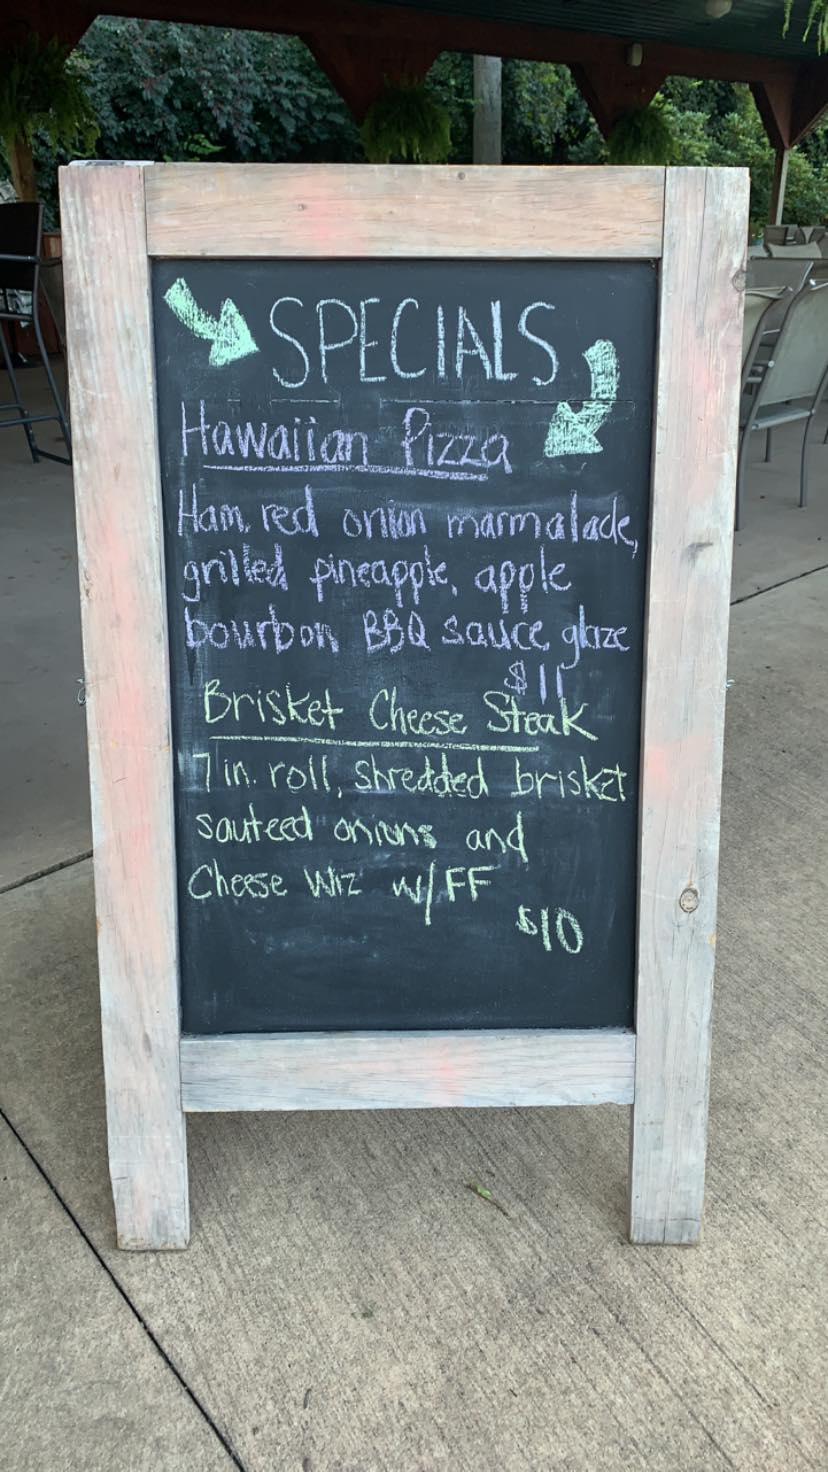 SPECIALS
Hawaiian Pizza
Ham, red onion marmalade,
grilled pineapple, apple
bourbon BBQ sauce glaze
$11
Brisket Cheese Steak
7 in. roll, shredded brisket
sauteed onions and
Cheese Wiz w/FF
$10